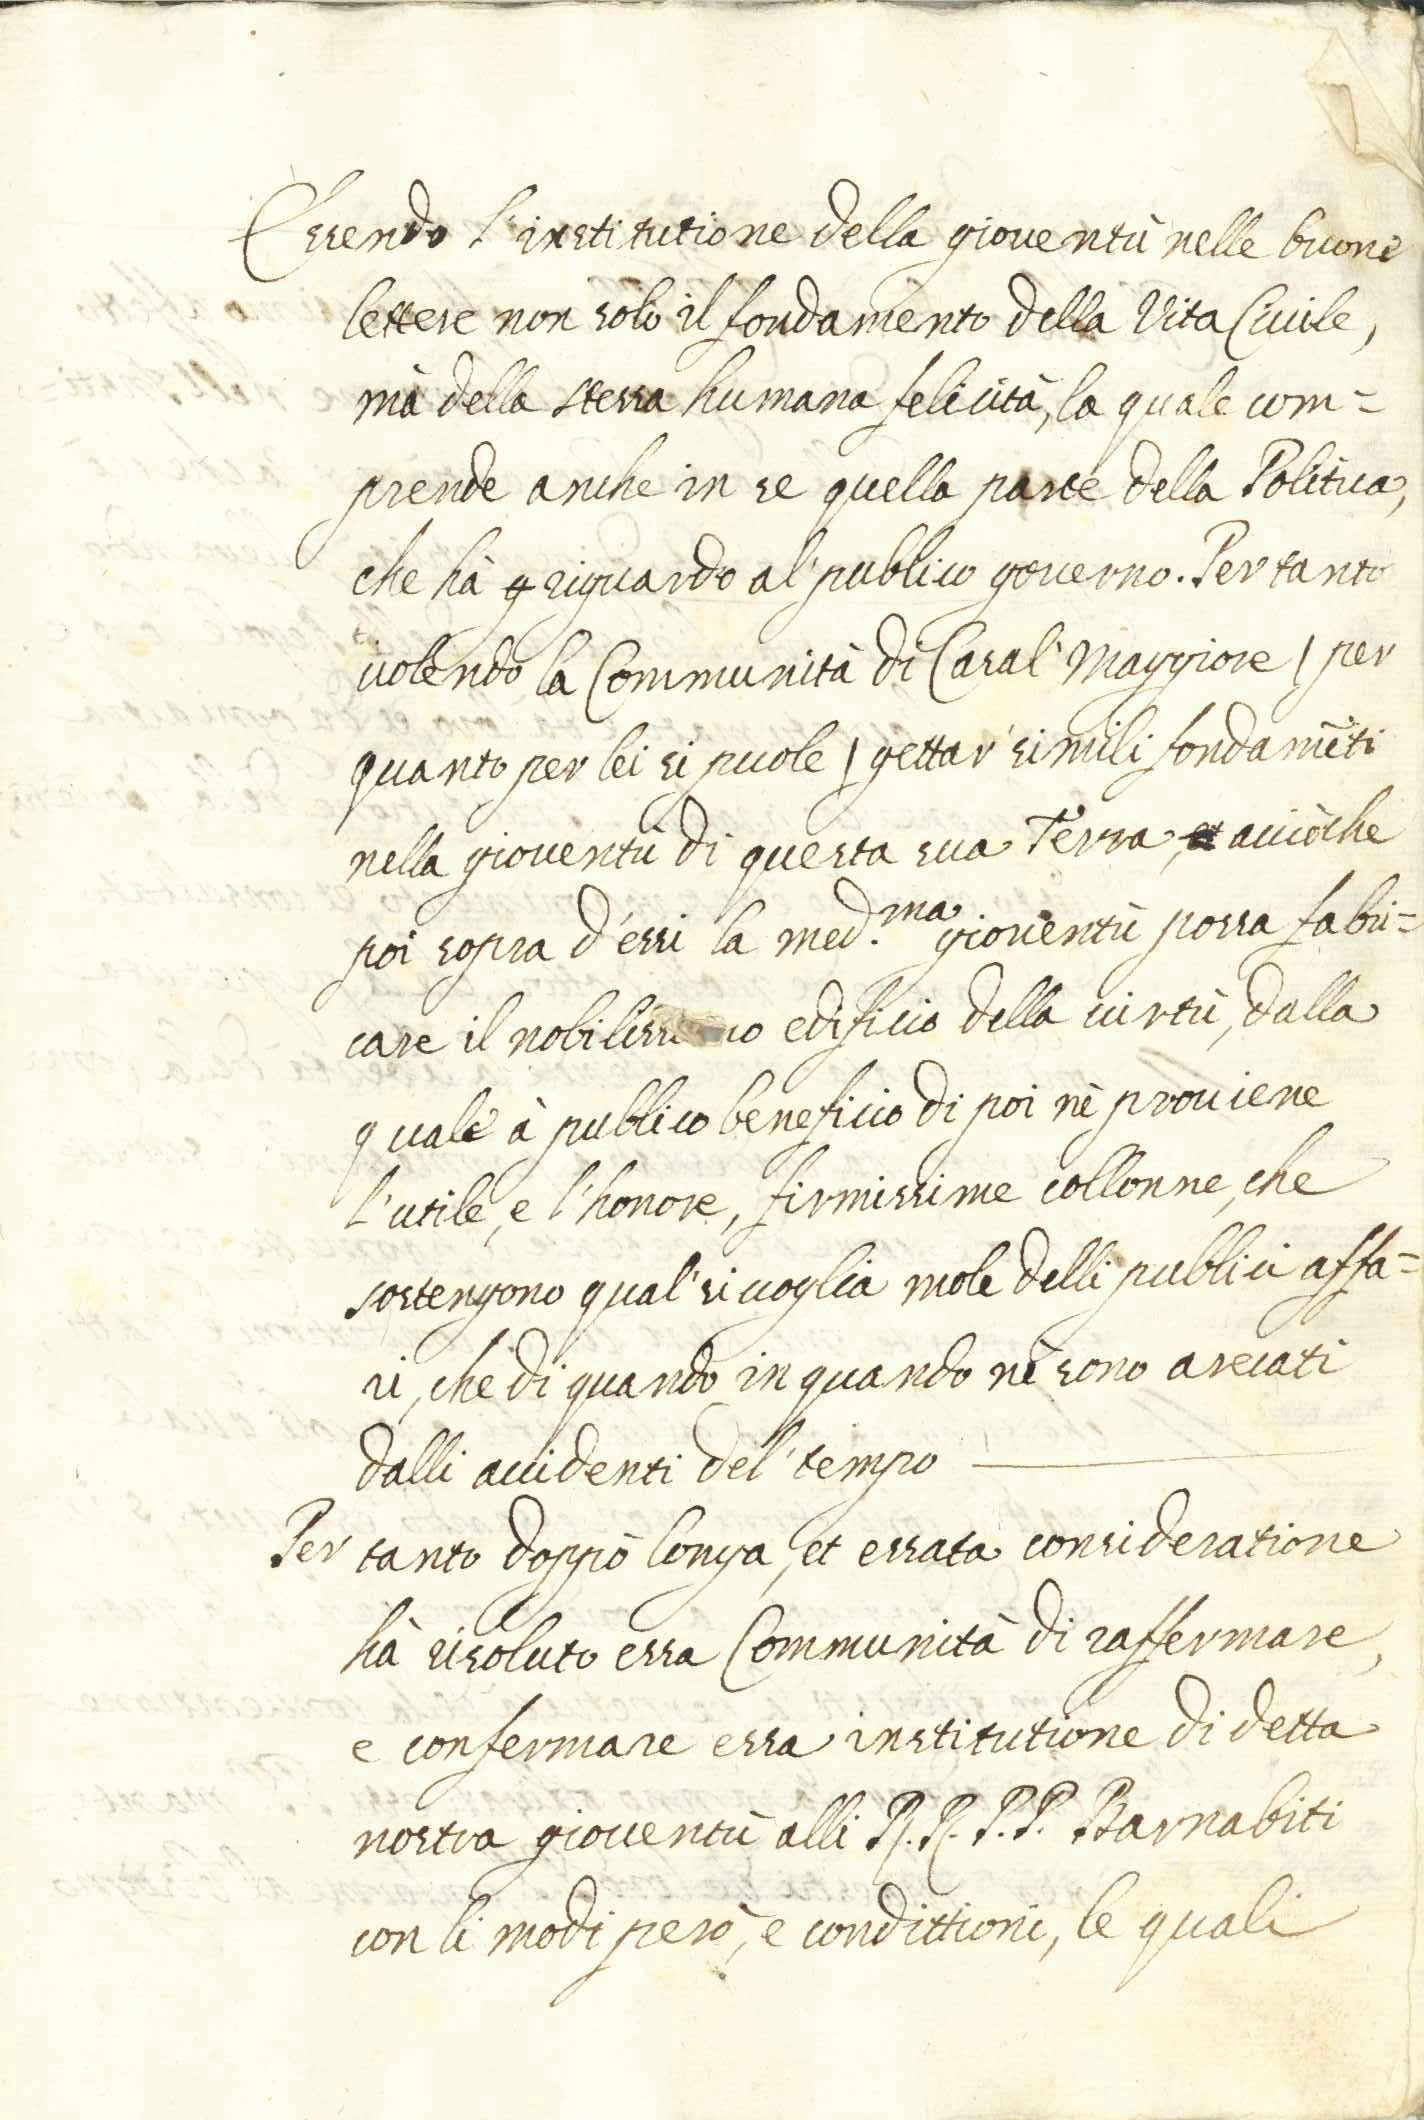 Essendo l'institutione della gioventù nelle buone
lettere non solo il fondamento della Vita Civile,
mà della stessa humana felicità, la quale com=
prende anche in se quella parte della Politica,
che hà riguardo al' publico governo. Per tanto
volendo la Communità di Casal' Maggiore / per
quanto per lei si puole / gettar' simili fondamēti
nella gioventù di questa sua Terra, acciòche
poi sopra d'essi la med.ma gioventù possa fabri=
care il nobilissimo edificio della virtù, dalla
quale à publico beneficio di poi nè proviene
l'utile, e l'honore, firmissime collonne, che
sostengono qual' si voglia mole delli publici affa=
ri, che di quando in quando nè sono arecati
dalli accidenti del' tempo
Per tanto doppò longa, et essata consideratione
hà risoluto essa Communità di raffermare,
e confermare essa institutione di detta
nostra gioventù alli R.R. P.P. Barnabiti
con li modi però, e condittioni, le quali